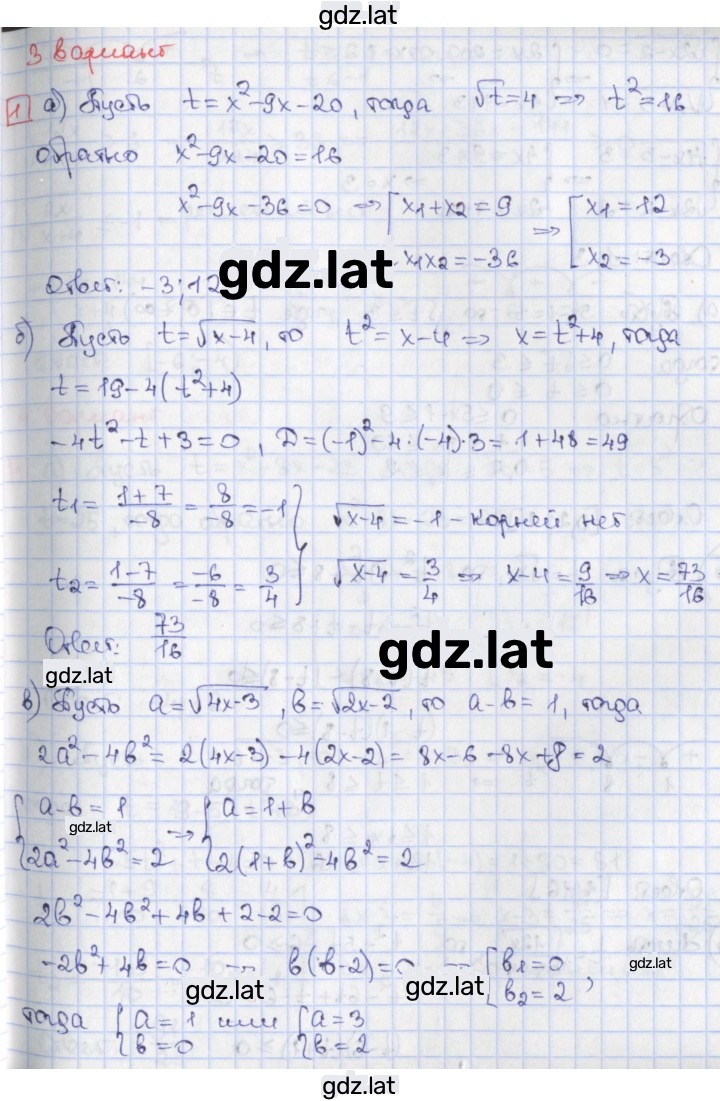 gdz.lat
3 вариант
1 а) Пусть t = x² - 9x - 20, тогда √t = 4 => t² = 16
обратно x² - 9x - 20 = 16
x² - 9x - 36 = 0 => [ x1 + x2 = 9 => [ x1 = 12
x1x2 = -36 x2 = -3
gdz.lat
Ответ: -3; 12
б) Пусть t = √x-4, то t² = x - 4 => x = t² + 4, тогда
t = 19 - 4(t² + 4)
-4t² - t + 3 = 0, D = (-1)² - 4·(-4)·3 = 1 + 48 = 49
t1 = 1+7/-8 = 8/-8 = -1 } √x-4 = -1 - корней нет
t2 = 1-7/-8 = -6/-8 = 3/4 } √x-4 = 3/4 => x - 4 = 9/16 => x = 73/16
Ответ: 73/16
gdz.lat
gdz.lat
в) Пусть a = √4x-3, в = √2x-2, то a - в = 1, тогда
2a² - 4в² = 2(4x-3) - 4(2x-2) = 8x - 6 - 8x + 8 = 2
{ a - в = 1 => { a = 1 + в
gdz.lat
{ 2a² - 4в² = 2 { 2(1+в)² - 4в² = 2
2в² - 4в² + 4в + 2 - 2 = 0
-2в² + 4в = 0 → в(в-2) = 0 → [ в1 = 0
в2 = 2 ,
gdz.lat
gdz.lat
gdz.lat
тогда { a = 1 или { a = 3
{ в = 0 { в = 2
gdz.lat